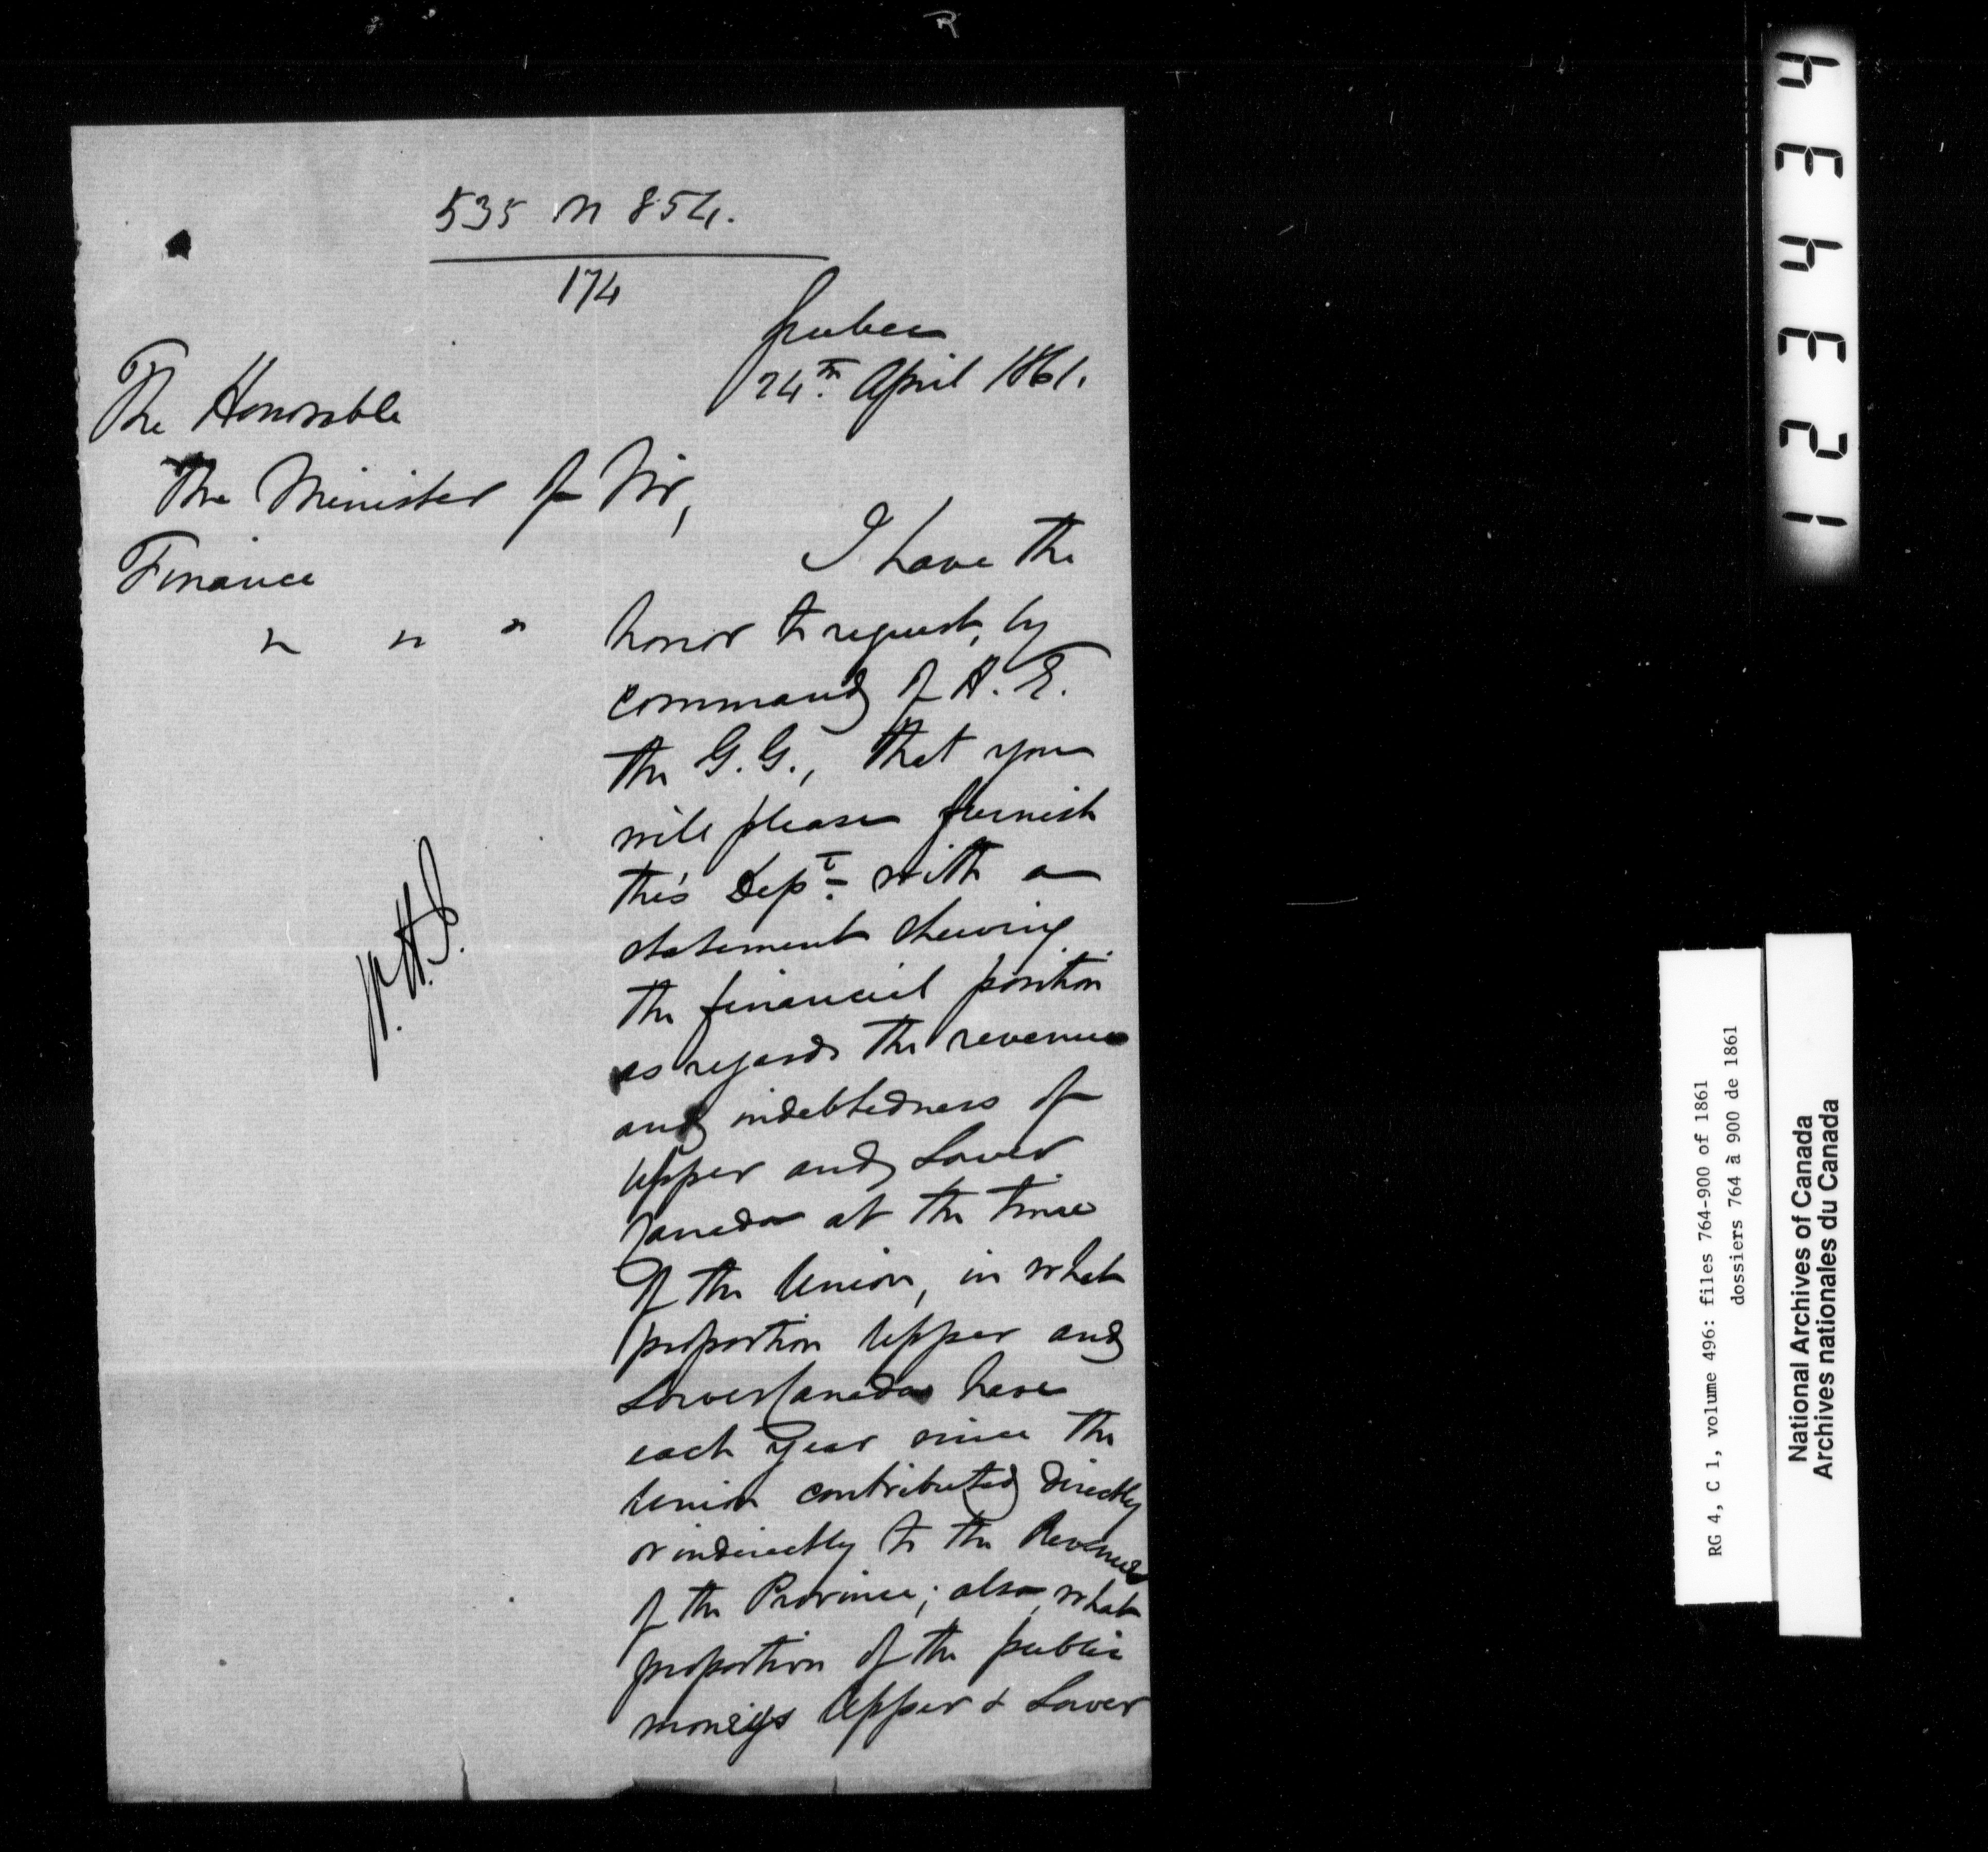 535 on 854.
174
Quebec
24th April 1861.
The Honorable
The Minister of
Finance
" " "
Sir,
I have the
honor to request, by
command of H. E.
the G. G., that you
will please furnish
this Dept. with a
statement shewing
the financial position
as regards the revenue
and indebtedness of
Upper and Lower
Canada at the time
of the Union, in what
proportion Upper and
Lower Canada have
each year since the
Union contributed directly
or indirectly to the Revenue
of the Province; also, what
proportion of the public
moneys Upper & Lower
12344334
RG 4, C 1, volume 496: files 764-900 of 1861
dossiers 764 à 900 de 1861
National Archives of Canada
Archives nationales du Canada